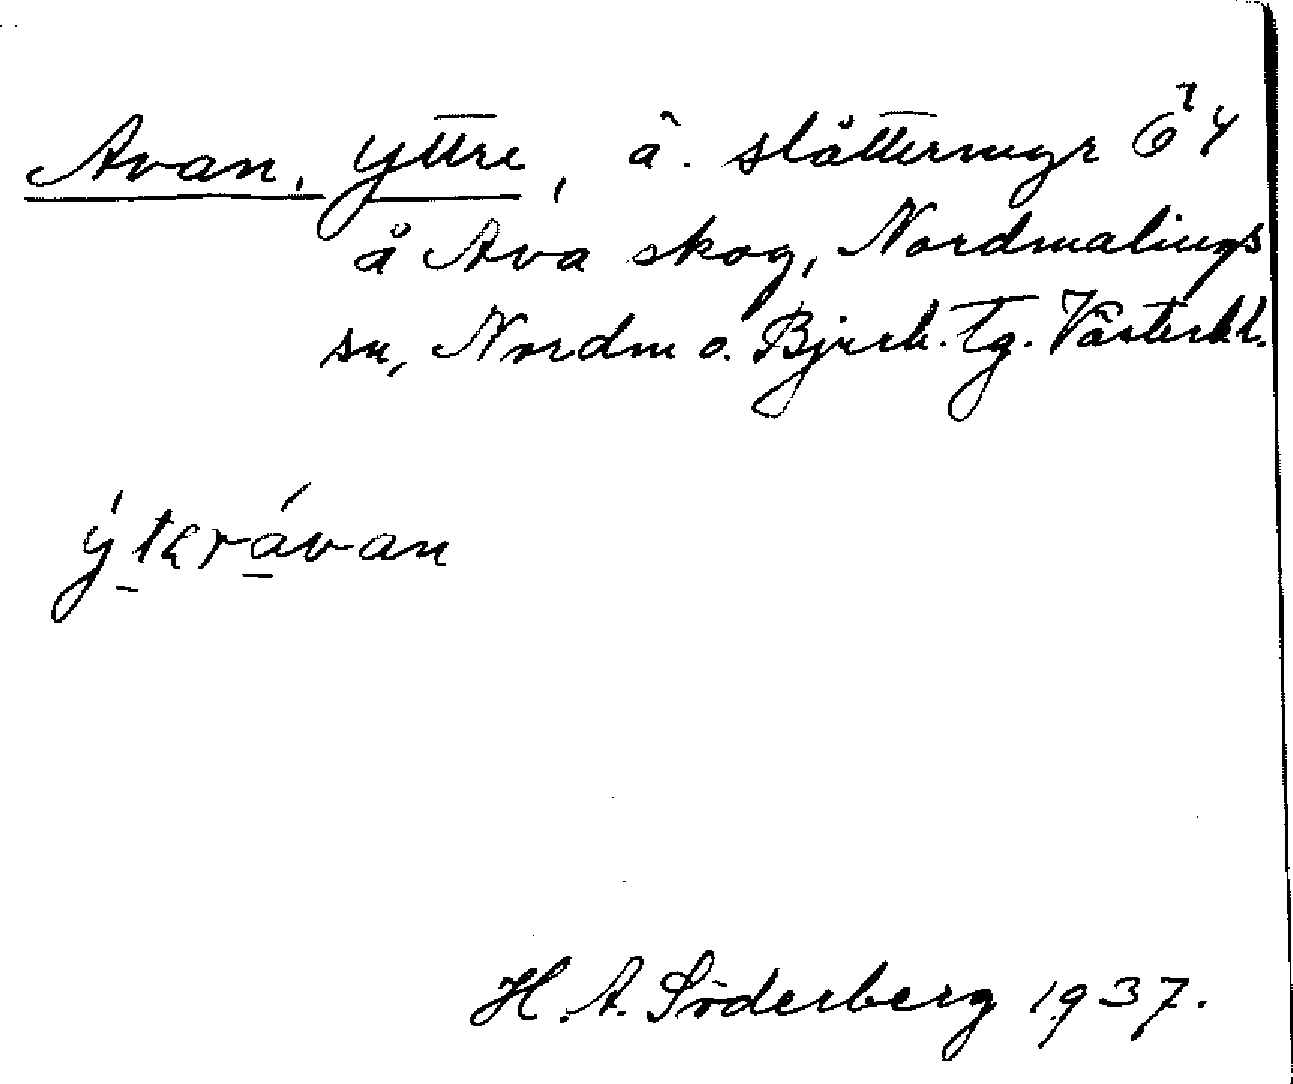 Avan, Yttre, ä. slåttermyr
å Ava skog, Nordmalings
sn, Nordm o. Bjurh. tg. Västerb l.
ýtrávan
H. A. Söderberg 1937.